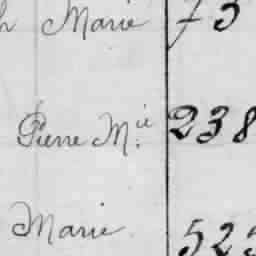 Marie 73
Pierre M.ie 238
Marie 52